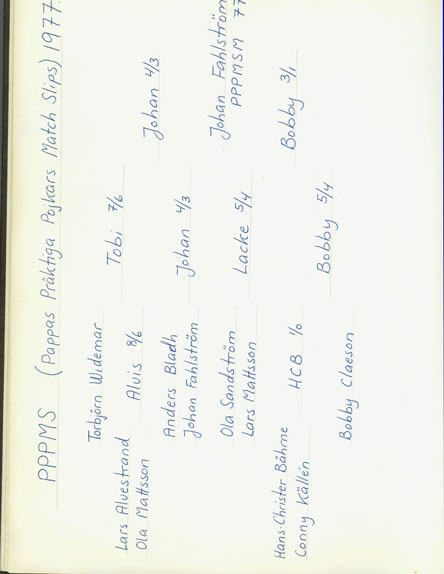 PPPMS (Pappas Präktiga Pojkars Match Slips) 1977.
Torbjörn Widemar
Tobi 7/6
Lars Alvestrand
Ola Mattsson
Alvis 8/6
Johan 4/3
Anders Bladh
Johan Fahlström
Johan 4/3
Johan Fahlström
PPPMSM 77
Ola Sandström
Lars Mattsson
Lacke 5/4
Bobby 3/1
Hans-Christer Bähme
Conny Källén
HCB 1/0
Bobby 5/4
Bobby Claeson